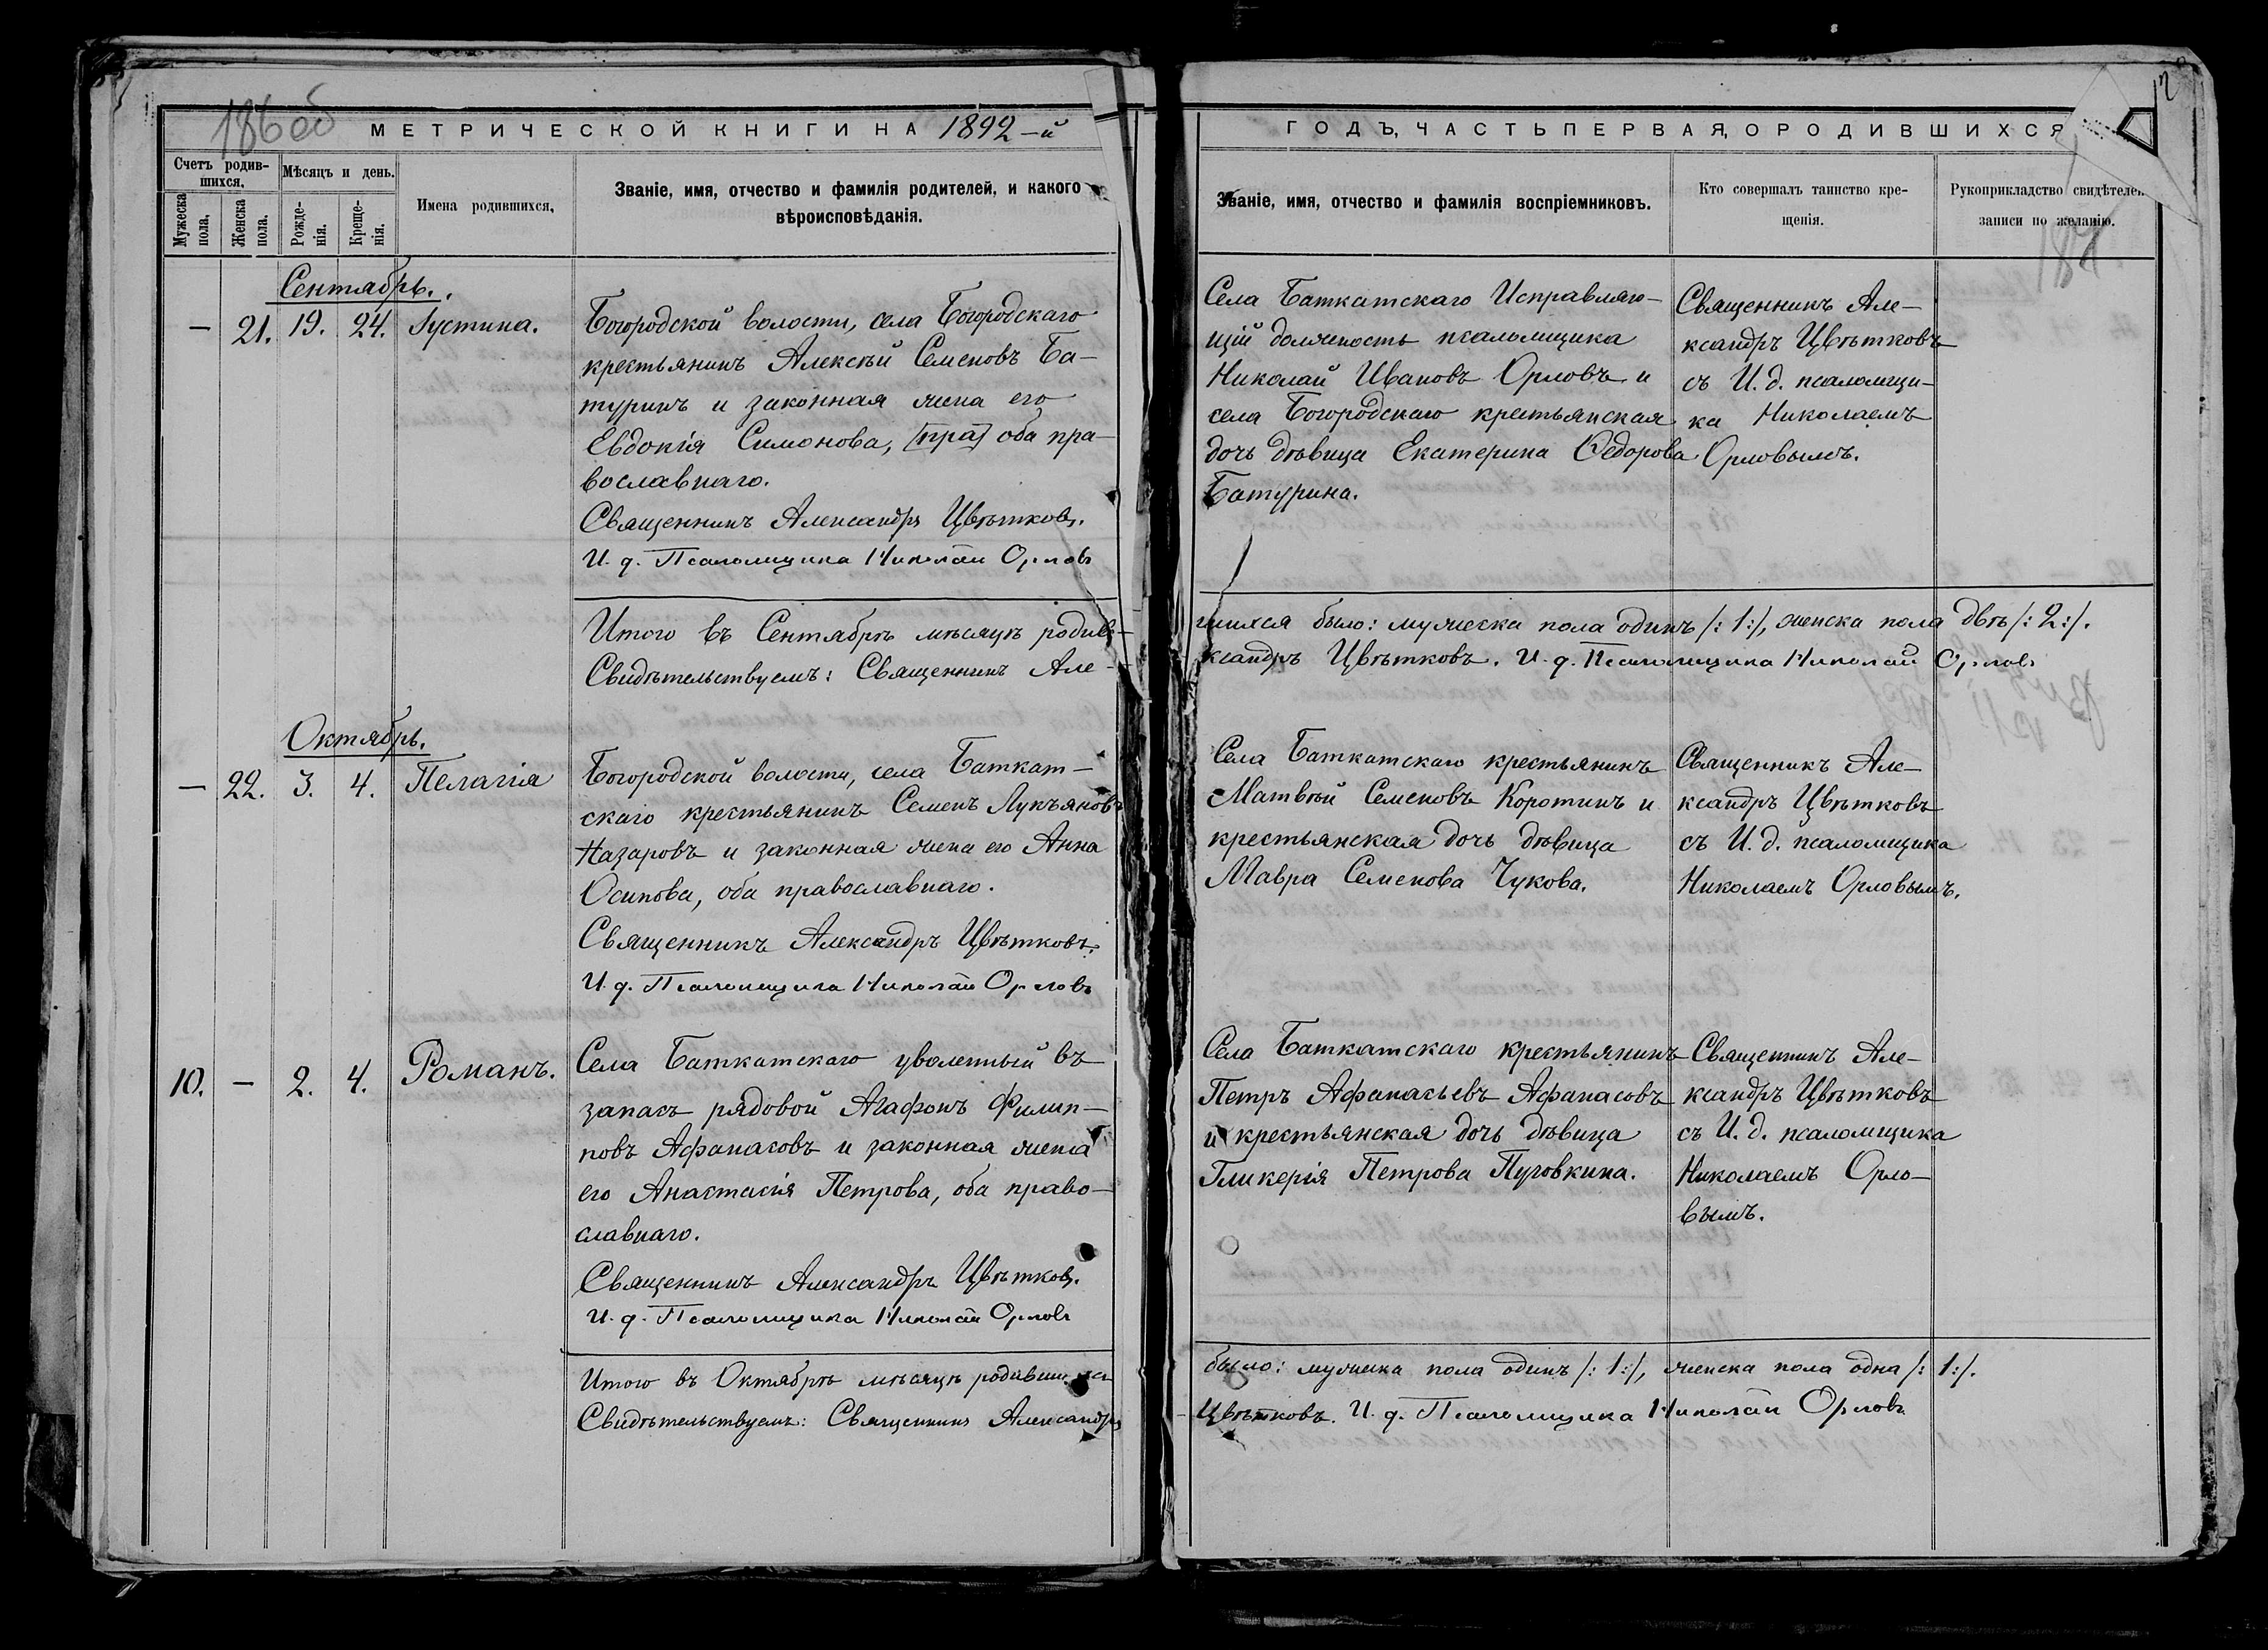 186 об
МЕТРИЧЕСКОЙ КНИГИ НА 1892-й
Счетъ родив-
шихся.
Мѣсяцъ и день.
Имена родившихся.
Званіе, имя, отчество и фамилія родителей, и какого
вѣроисповѣданія.
Мужеска
пола.
Женска
пола.
Рожде-
нія.
Креще-
нія.
Сентябрь.
— 21. 19. 24. Іустина.
Богородской волости, села Богородскаго
крестьянинъ Алексѣй Семеновъ Ба-
туринъ и законная жена его
Евдокія Симонова, [пра] оба пра-
вославнаго.
Священникъ Александръ Цвѣтковъ.
И. д. Псаломщика Николай Орловъ
Итого въ Сентябрѣ мѣсяцѣ родив-
Свидѣтельствуемъ: Священникъ Але-
Октябрь.
— 22. 3. 4. Пелагія
Богородской волости, села Баткат-
скаго крестьянинъ Семенъ Лукьяновъ
Назаровъ и законная жена его Анна
Осипова, оба православнаго.
Священникъ Александръ Цвѣтковъ.
И. д. Псаломщика Николай Орловъ
10. — 2. 4. Романъ.
Села Баткатскаго уволенный въ
запасъ рядовой Агафонъ Филип-
повъ Афанасовъ и законная жена
его Анастасія Петрова, оба право-
славнаго.
Священникъ Александръ Цвѣтковъ.
И. д. Псаломщика Николай Орловъ
Итого въ Октябрѣ мѣсяцѣ родившихся
Свидѣтельствуемъ: Священникъ Александръ
ГОДЪ, ЧАСТЬ ПЕРВАЯ, О РОДИВШИХСЯ
Званіе, имя, отчество и фамилія воспріемниковъ.
Кто совершалъ таинство кре-
щенія.
Рукоприкладство свидѣтелей
записи по желанію.
187
Села Баткатскаго Исправляю-
щій должность псаломщика
Николай Ивановъ Орловъ и
села Богородскаго крестьянская
дочь дѣвица Екатерина Ѳедорова
Батурина.
Священникъ Але-
ксандръ Цвѣтковъ
съ И. д. псаломщи-
ка Николаемъ
Орловымъ.
шихся было: мужеска пола одинъ /: 1 :/, женска пола двѣ /: 2 :/.
ксандръ Цвѣтковъ. И. д. Псаломщика Николай Орловъ
Села Баткатскаго крестьянинъ
Матвѣй Семеновъ Коротинъ и
крестьянская дочь дѣвица
Мавра Семенова Чукова.
Священникъ Але-
ксандръ Цвѣтковъ
съ И. д. псаломщика
Николаемъ Орловымъ.
Села Баткатскаго крестьянинъ
Петръ Афанасьевъ Афанасовъ
и крестьянская дочь дѣвица
Гликерія Петрова Пуговкина.
Священникъ Але-
ксандръ Цвѣтковъ
съ И. д. псаломщика
Николаемъ Орло-
вымъ.
было: мужеска пола одинъ /: 1 :/, женска пола одна /: 1 :/.
Цвѣтковъ. И. д. Псаломщика Николай Орловъ